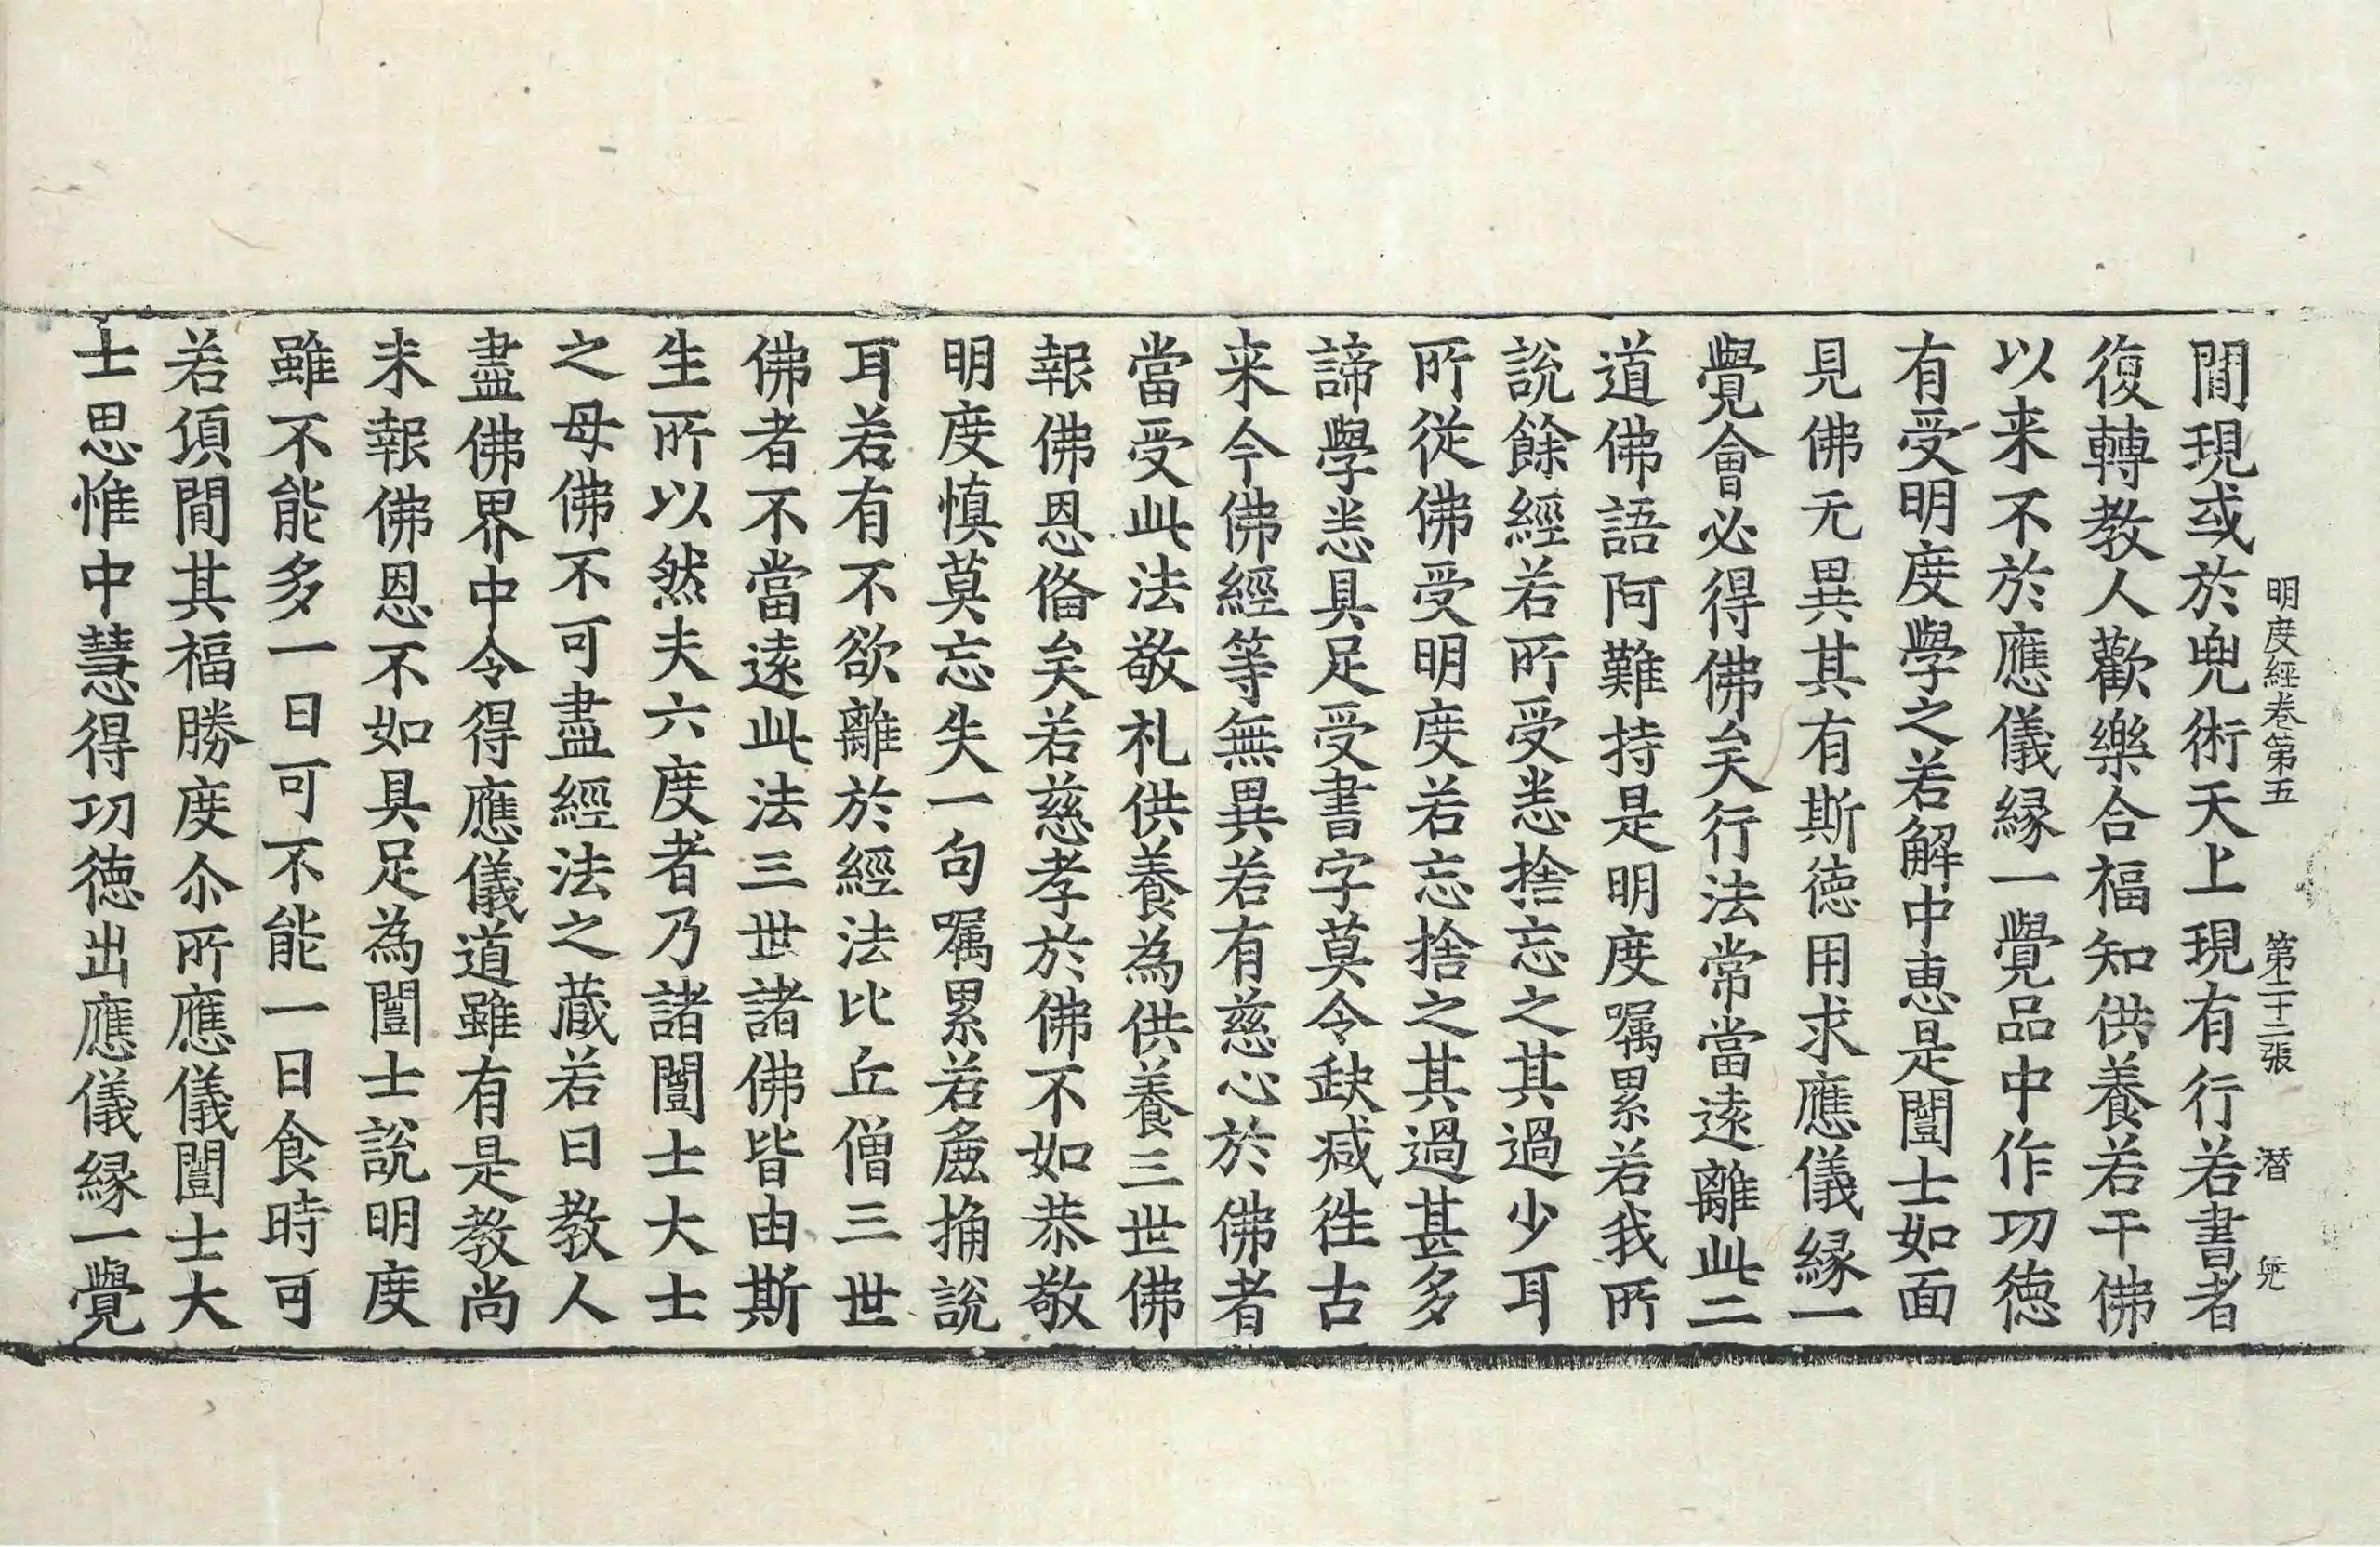 明度經卷第五　第二十二張　潛　
間現或於兜術天上現有行若書者
復轉教人歡樂合福知供養若干佛
以来不於應儀縁一覺品中作功徳
有受明度學之若解中恵是闓士如面
見佛无異其有斯徳用求應儀縁一
覺會必得佛矣行法常當遠離此二
道佛語阿難持是明度嘱累若我所
說餘經若所受悉捨忘之其過少耳
所從佛受明度若忘捨之其過甚多
諦學悉具足受書字莫令缺减徃古
来今佛經等無異若有慈心於佛者
當受此法敬礼供養為供養三世佛
報佛恩俻矣若慈孝於佛不如恭敬
明度慎莫忘失一句嘱累若麁捔說
耳若有不欲離於經法比丘僧三世
佛者不當遠此法三世諸佛皆由斯
生所以然夫六度者乃諸闓士大士
之母佛不可盡經法之蔵若日教人
盡佛界中令得應儀道雖有是教尚
未報佛恩不如具足為闓士說明度
雖不能多一日可不能一日食時可
若傾間其福勝度尒所應儀闓士大
士思惟中慧得功徳出應儀縁一覺